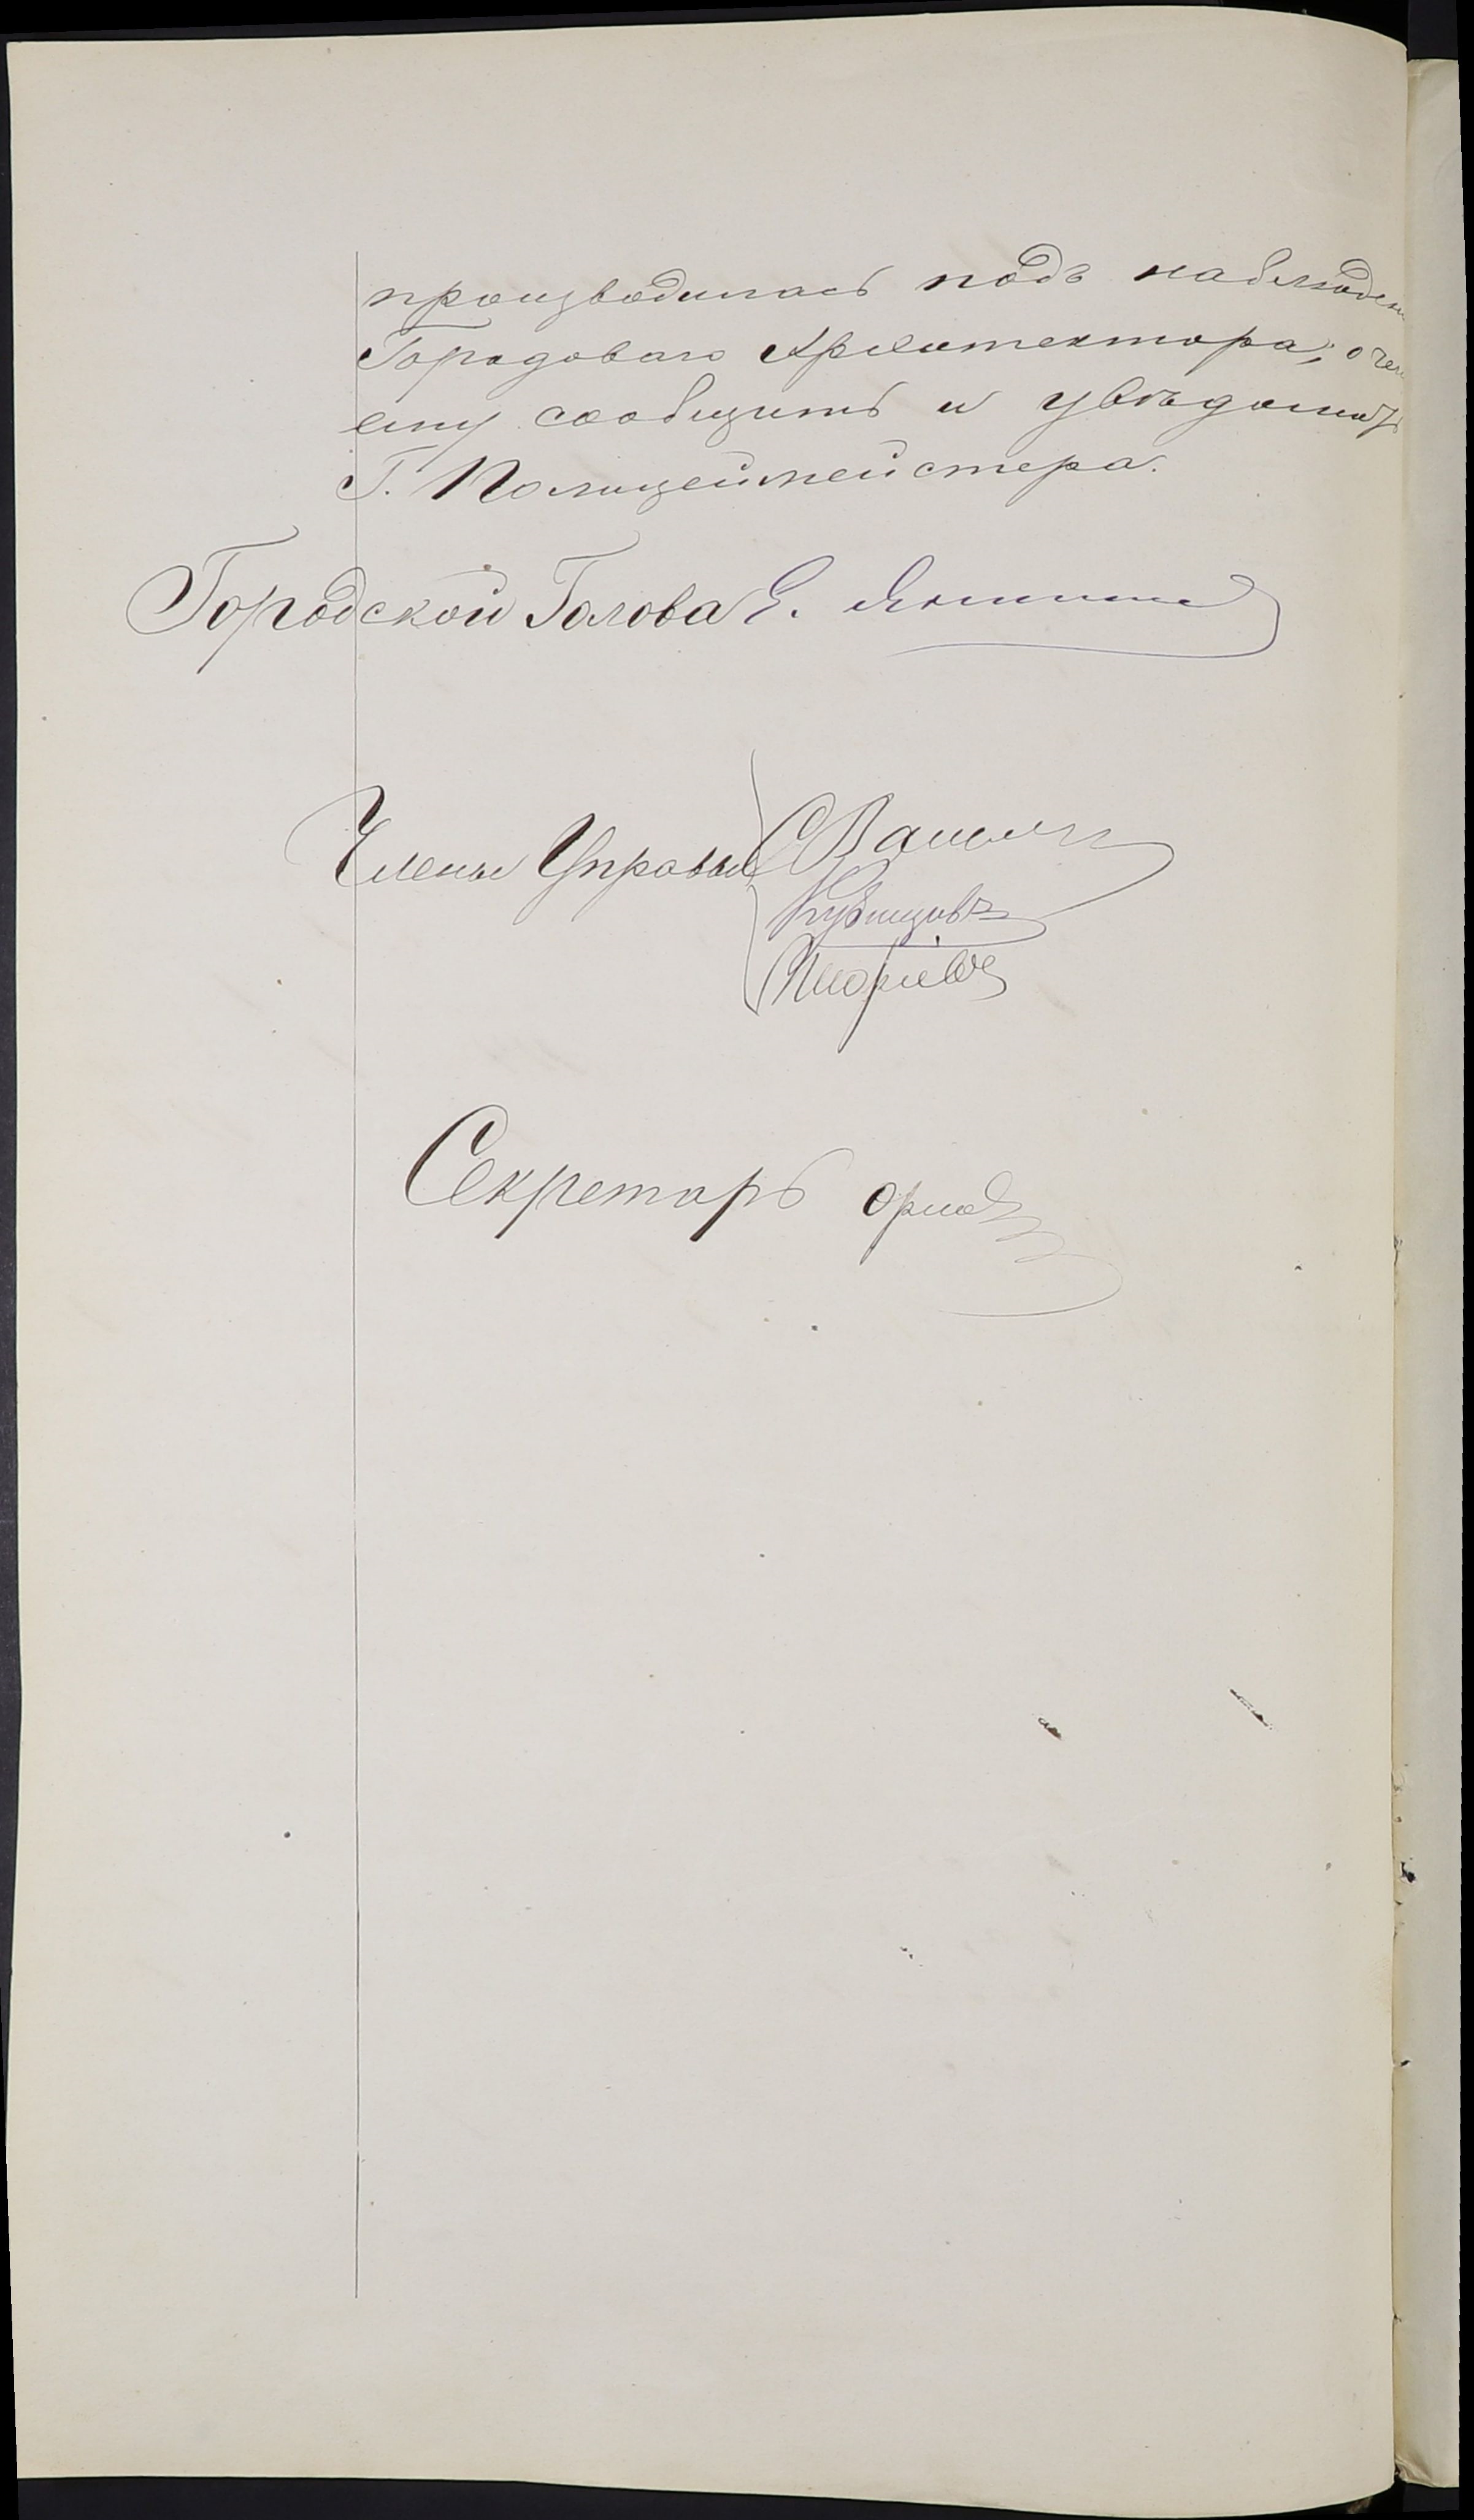 производилась подъ наблюден
Городоваго Архитектора, о чем
ему сообщить и увѣдомить
Г. Полицеймейстера.
Городской Голова Е.
Члены Управы
Кузнецовъ
Секретарь Орлов